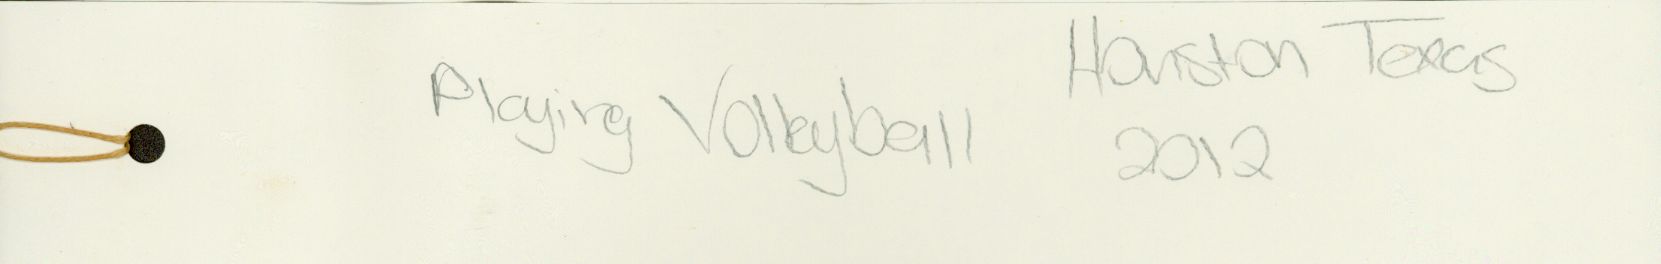 Playing Volleyball
Houston Texas
2012